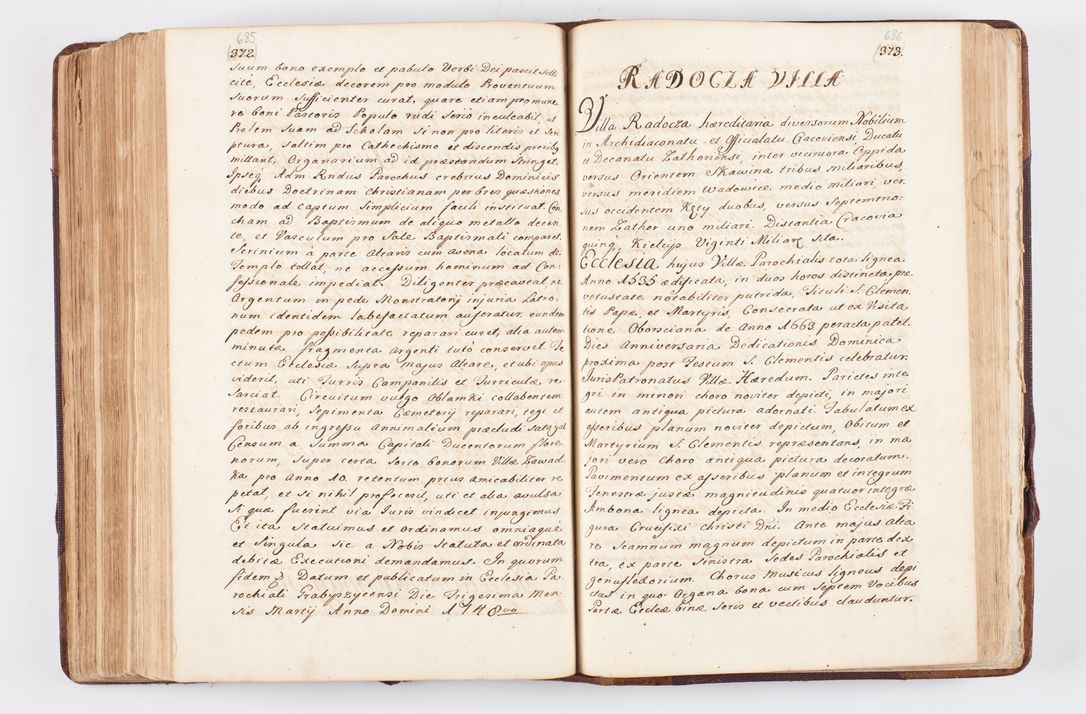 685
372.
suum bono exemplo et pabulo Verbi Dei pascit solli
cité, Ecclesiæ decorem pro modulo Proventuum
suorum sufficienter curat, quare etiam pro munere
re boni Pastoris Populo rudi seris inculcabit, ut
Prolem suam ad Scholam si non pro literis et Scri
ptura, saltim pro Cathechismo et discendis precibꝰ
mittant, Organarium ad id præstandum stringet.
Ipseq Adm Rndus Parochus crebrius Dominicis
diebus Doctrinam Christianam per bres quæstiones
modo ad captum simplicium facili instituat. Con
cham ad Baptismum de aliquo metallo decen
te, et Vasculum pro Sale Baptismali comparet.
Scrinium à parte Altaris cum avena locatum de
Templo tollat, ne accessum hominum ad Con
fessionale impediat. Diligenter præcaveat, ne
Argentum in pede Monstratorij injuria Latro
num identidem labefactatum auferatur, eundem
pedem pro possibilitate reparari curet, alia autem
minuta fragmenta argenti tutò conservet. Te
ctum Ecclesiæ supra majus Altare, et ubi opus
viderit, uti Turris Campanilis et Turriculæ, re
sarciat. Circuitum vulgo Oblamki collabentem
restaurari, Sepimenta Cæmeterij reparari, tegi et
foribus ab ingressu Annimalium præcludi satagat
Censum a Summa Capitali Ducentorum flore
norum, super certa sorte bonorum Villæ Zawad
ka pro Anno 10. retentum prius amicabiliter re
petat, et si nihil profecerit, uti et alia avulsa
si quæ fuerint via Juris vindicet injungimus
Et ita Statuimus et Ordinamus omniaque
et singula sic a Nobis statuta et ordinata
debitæ Executioni demandamus. In quorum
fidem Datum et publicatum in Ecclesia Pa
rochiali Trabyszycensi Die Trigesima Men
sis Martij Anno Domini 1748vo
686
373.
RADOCZA VILLA
Villa Radocza hæreditaria diversorum Nobilium
in Archidiaconatu et Officialatu Cracoviensi, Ducatu
et Decanatu Zathoriensi, inter viciniora Oppida
versus Orientem Skawina tribus miliaribus,
versus meridiem Wadowice medio miliari, ver
sus occidentem Kęty duobus, versus Septemtrio
nem Zathor uno miliari. Distantia Cracovia
quinq, Kielcijs Viginti Miliarx sita.
Ecclesia hujus Villæ Parochialis tota lignea
Anno 1535 ædificata, in duos horos distincta, præ
vetustate notabiliter putrida, Tituli S. Clemen
tis Papæ, et Martyris, Consecrata ut ex Visita
tione Oborsciana de Anno 1663 peracta patet.
Dies Anniversaria Dedicationis Dominica
proxima post Festum S. Clementis celebratur.
Juris Patronatus Villæ Hæredum. Parietes inte
gri in minori choro noviter depicti, in majori
autem antiqua pictura adornati. Tabulatum ex
asseribus planum noviter depictum, Obitum et
Martyrium S. Clementis repræsentans, in ma
jori vero Choro antiqua pictura decoratum.
Pavimentum ex asseribus planum et integrum
Fenestræ justæ magnitudinis quatuor integræ
Ambona lignea depicta. In medio Ecclesiæ Fi
gura Crucifixi Christi Dni. Ante majus alta
re Scamnum magnum depictum in parte dex
tra, ex parte sinistra Sedes Parochialis et
genuflectorium. Chorus Musicus ligneus depi
ctus in quo Organa bona cum Septem Vocibus
Portæ Ecclæ binæ seris et vectibus clauduntur.